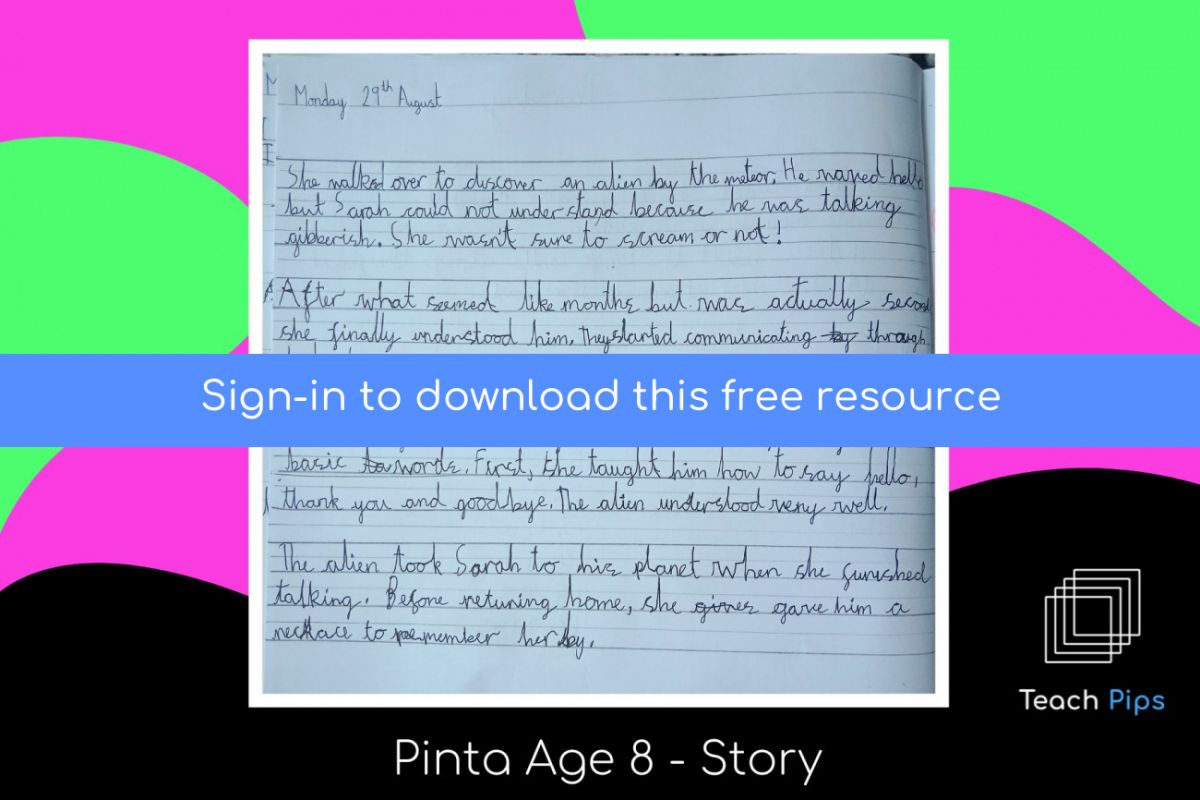 Monday 29th August
She walked over to discover an alien by the meteor. He waved hello
but Sarah could not understand because he was talking
gibberish. She wasn't sure to scream or not!
After what seemed like months but was actually second
she finally understood him. They started communicating by through
Sign-in to download this free resource
basic words. First, she taught him how to say hello,
thank you and goodbye. The alien understood very well.
The alien took Sarah to his planet when she funished
talking. Before retuning home, she gives gave him a
necklace to remember her by.
Teach Pips
Pinta Age 8 - Story